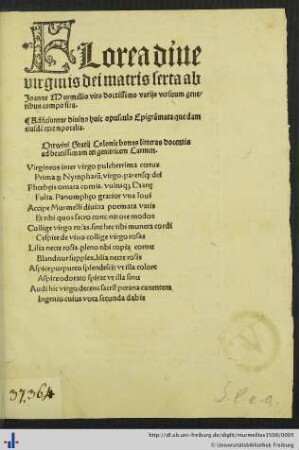 Florea diue
virginis dei matris serta ab
Joanne Murmellio viro doctissimo varijs versuum gene
ribus composita.
¶ Adduntur diuino huic opusculo Epigrāmata quedam
eiusdē extemporalia.
Ortuini Gratij Colonie bonas litteras docentis
ad beatissimam dei genitricem Carmen.
Virgineos inter virgo pulcherrima cetus
Fulta. Panomphęo gratior vna Ioui
Accipe Murmelli diuina poemata vatis
Et tibi quos sacro
Collige virgo rosas. sunt hec tibi munera cordi
Cespite de viuo collige virgo rosas
Lilia necte rosis. pleno tibi copia cornu
Blanditur supplex. lilia necte rosis
Aspice purpureo splendescit vt illa colore
Aspice odorato spirat vt illa sinu
Audi hic virgo decens sacrū peana canentem
Ingenio cuius vota secunda dabis
37,364
http://dl.ub.uni-freiburg.de/diglit/murmellius1508/0005
© Universitätsbibliothek Freiburg